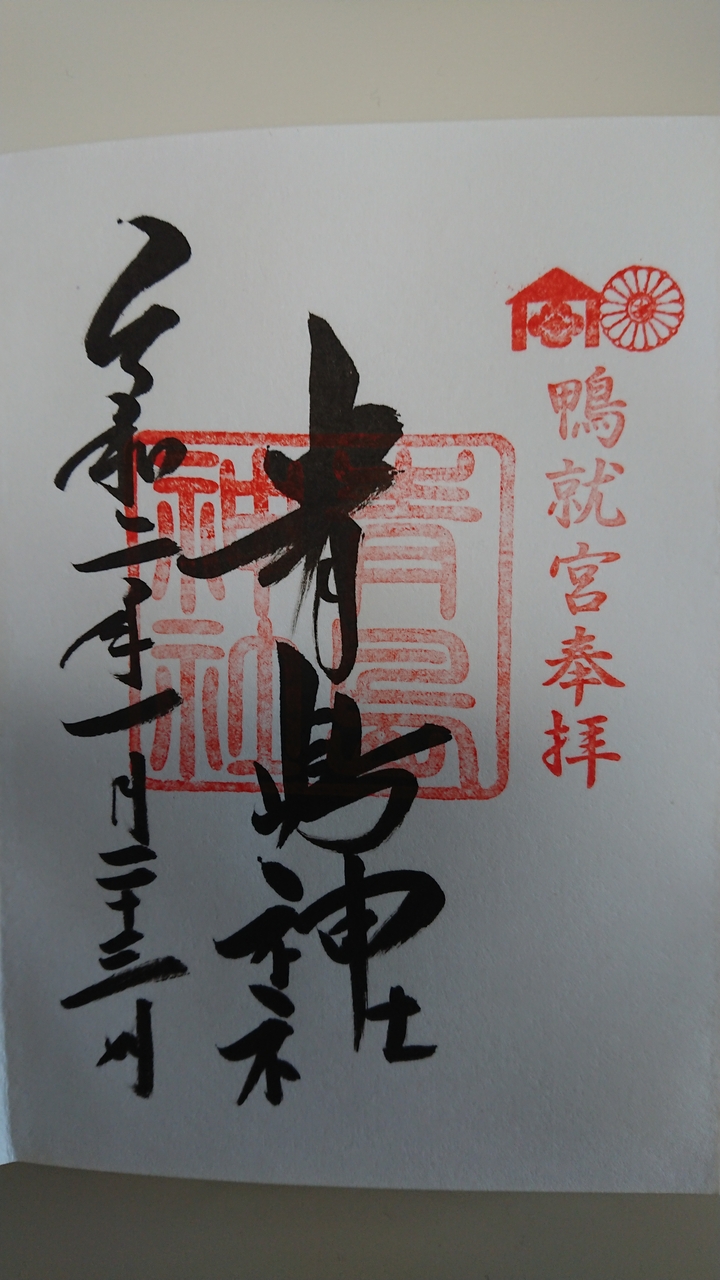 鴨就宮奉拝
青島神社
青島神社
令和二年一月二十三日